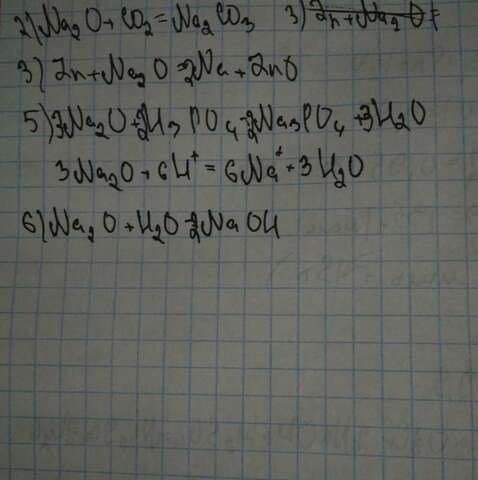 2) Na₂O + CO₂ = Na₂CO₃ 3) Zn + Na₂O =
3) Zn + Na₂O = 2Na + ZnO
5) 3Na₂O + 2H₃PO₄ = 2Na₃PO₄ + 3H₂O
3Na₂O + 6H⁺ = 6Na⁺ + 3H₂O
6) Na₂O + H₂O = 2NaOH